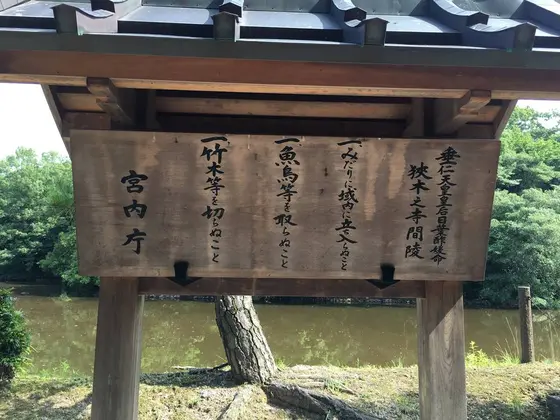 垂仁天皇皇后日葉酢媛命
狹木之寺間陵
一みだりに域内に立ち入らぬこと
一魚鳥等を取らぬこと
一竹木等を切らぬこと
宮内庁